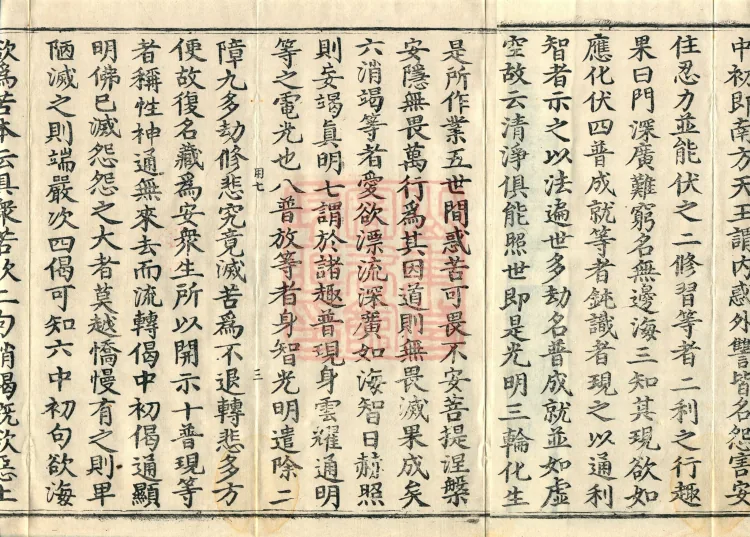 中初即南方天王謂內惑外讐皆名怨害安
住忍力並能伏之二修習等者二利之行趣
果曰門深廣難窮名無邊海三知其現欲如
應化伏四普成就等者鈍識者現之以通利
智者示之以法遍世多劫名普成就並如虛
空故云清淨俱能照世即是光明三輪化生
是所作業五世間惑苦可畏不安菩提涅槃
安隱無畏萬行爲其因道則無畏滅果成矣
六消竭等者愛欲漂流深廣如海智日赫照
則妄竭眞明七謂於諸趣普現身雲耀通明
等之電光也八普放等者身智光明遣除二
用七 三
障九多劫修悲究竟滅苦爲不退轉悲多方
便故復名藏爲安衆生所以開示十普現等
者稱性神通無來去而流轉偈中初偈通顯
明佛已滅怨怨之大者莫越憍慢有之則卑
陋滅之則端嚴次四偈可知六中初句欲海
欲爲苦本云具衆苦次二句消竭旣欲惡土